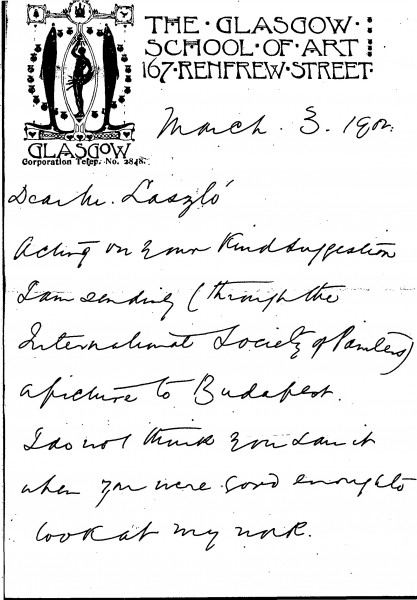 THE · GLASGOW ·
SCHOOL · OF · ART
167 · RENFREW · STREET
GLASGOW
Corporation Telep. No. 2848.
March. 3. 1902.
Dear Mr. László
Acting on your kind suggestion
I am sending (through the
International Society of Painters)
a picture to Budapest.
I do not think you saw it
when you were good enough to
look at my work.